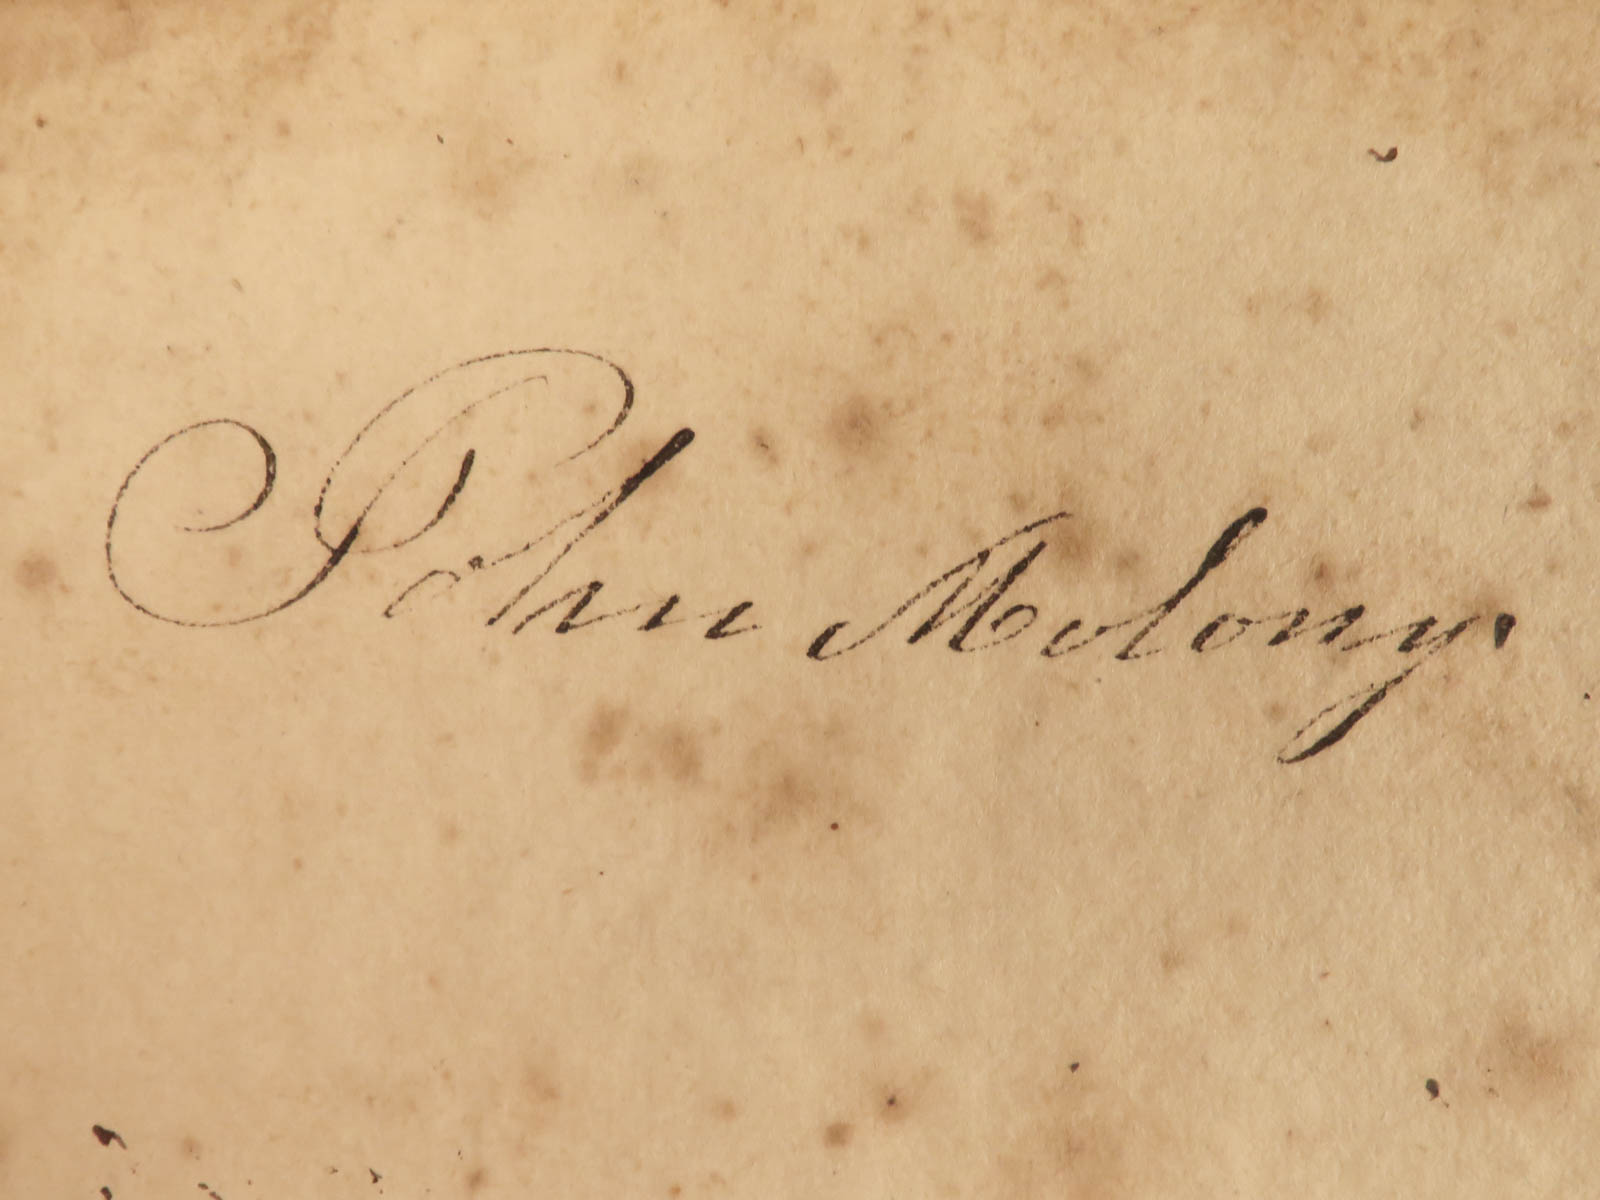 John Molony.